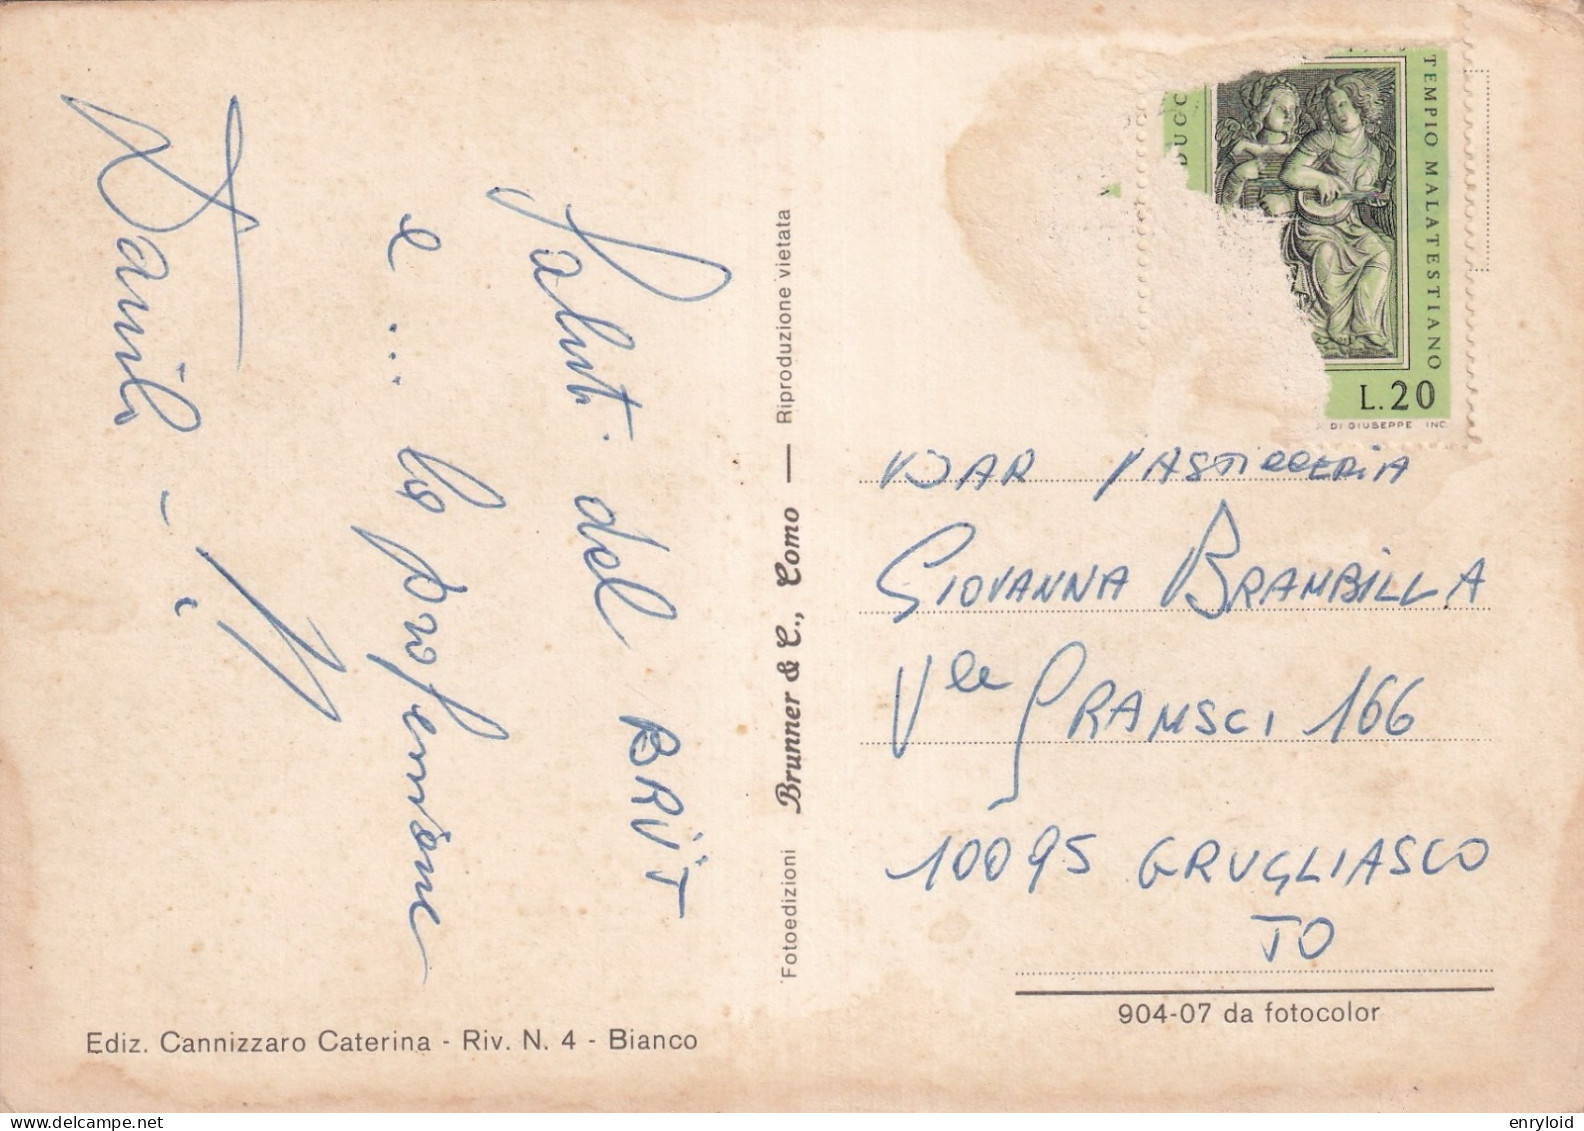 Saluti del BRÜT
e... la professione
Danila -
Fotoedizioni Brunner & C., Como — Riproduzione vietata
DUCC
TEMPIO MALATESTIANO
L.20
DI GIUSEPPE INC.
BAR PASTICCERIA
GIOVANNA BRAMBILLA
Vle GRAMSCI 166
10095 GRUGLIASCO
TO
904-07 da fotocolor
Ediz. Cannizzaro Caterina - Riv. N. 4 - Bianco
enryloid
www.delcampe.net